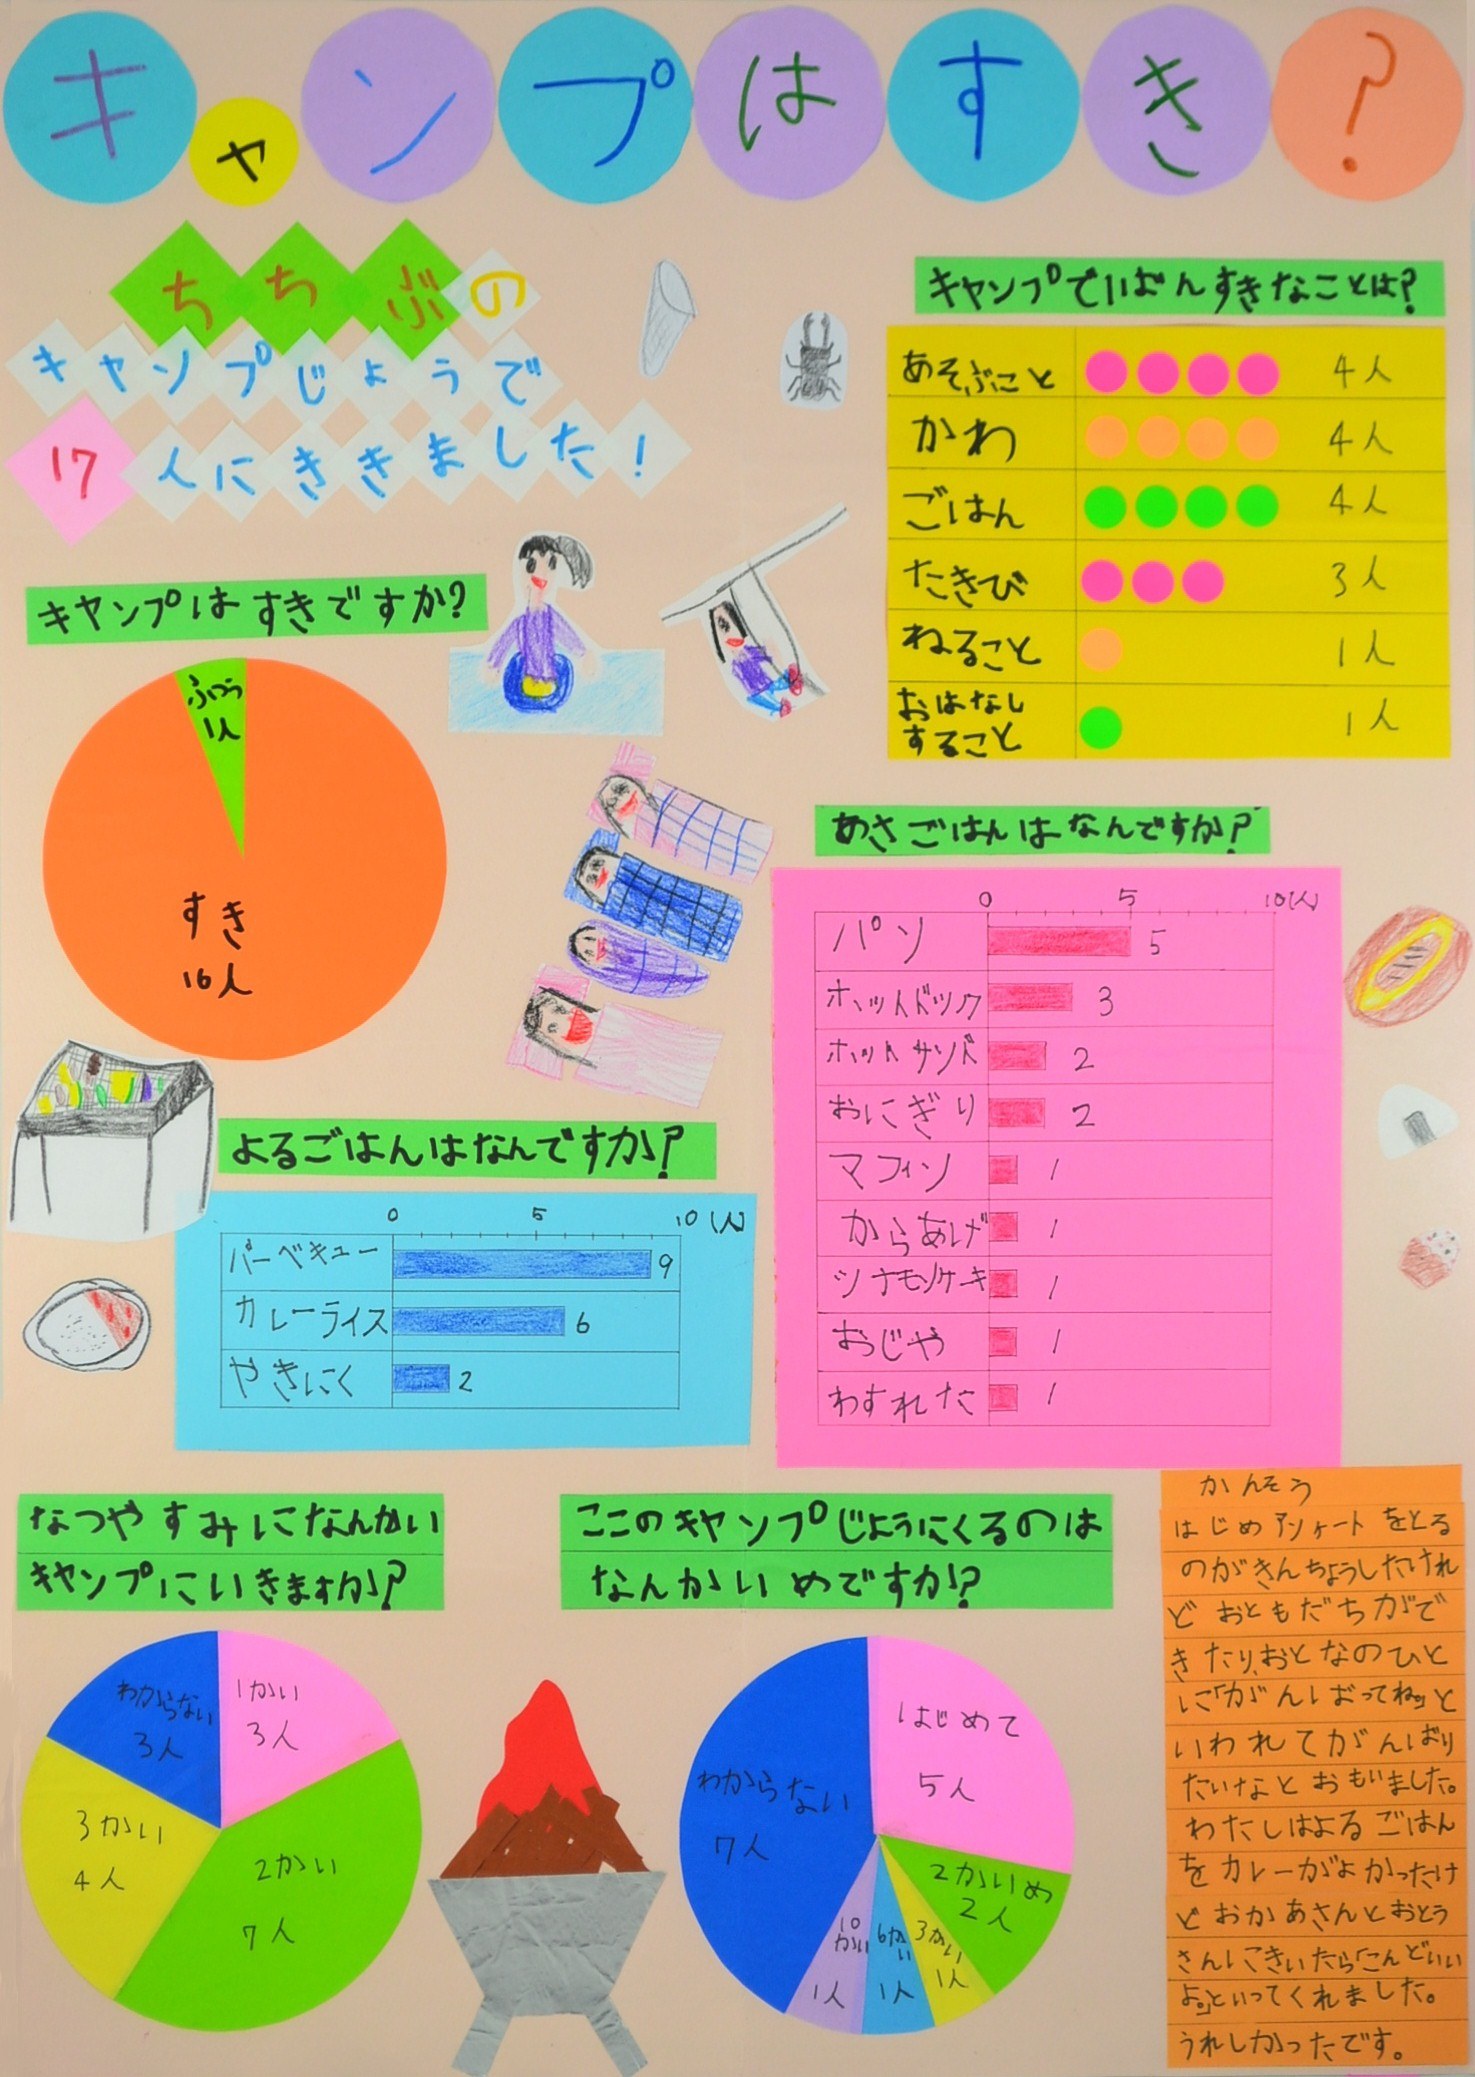 キャンプはすき?
ちちぶの
キャンプじょうで
17人にききました!
キャンプでいばんすきなことは?
あそぶこと 4人
かわ 4人
ごはん 4人
たきび 3人
ねること 1人
おはなし
すること 1人
キャンプはすきですか?
ふつう
1人
すき
16人
あさごはんはなんですか?
0 5 10(人)
パン 5
ホットドック 3
ホットサンド 2
おにぎり 2
マフィン 1
からあげ 1
シナモンケーキ 1
おじや 1
わすれた 1
よるごはんはなんですか?
0 5 10(人)
バーベキュー 9
カレーライス 6
やきにく 2
なつやすみになんかい
キャンプにいきますか?
1かい
3人
2かい
7人
3かい
4人
わからない
3人
ここのキャンプじょうにくるのは
なんかいめですか?
はじめて
5人
2かいめ
2人
3かい
1人
6かい
1人
10かい
1人
わからない
7人
かんそう
はじめアンケートをとる
のがきんちょうしたけれ
どおともだちがで
きたり、おとなのひと
に「がんばってね」と
いわれてがんばり
たいなとおもいました。
わたしはよるごはん
をカレーがよかったけ
どおかあさんとおとう
さんにきいたら「こんどいい
よ。」といってくれました。
うれしかったです。